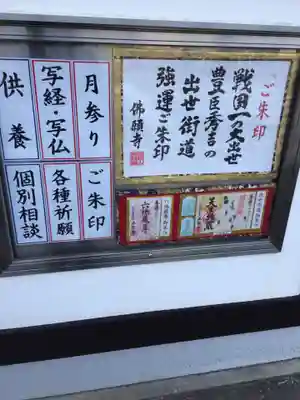 ご朱印
戦国一の大出世
豊臣秀吉の
出世街道
強運ご朱印
佛願寺
月参り
写経・写仏
供養
ご朱印
各種祈願
個別相談